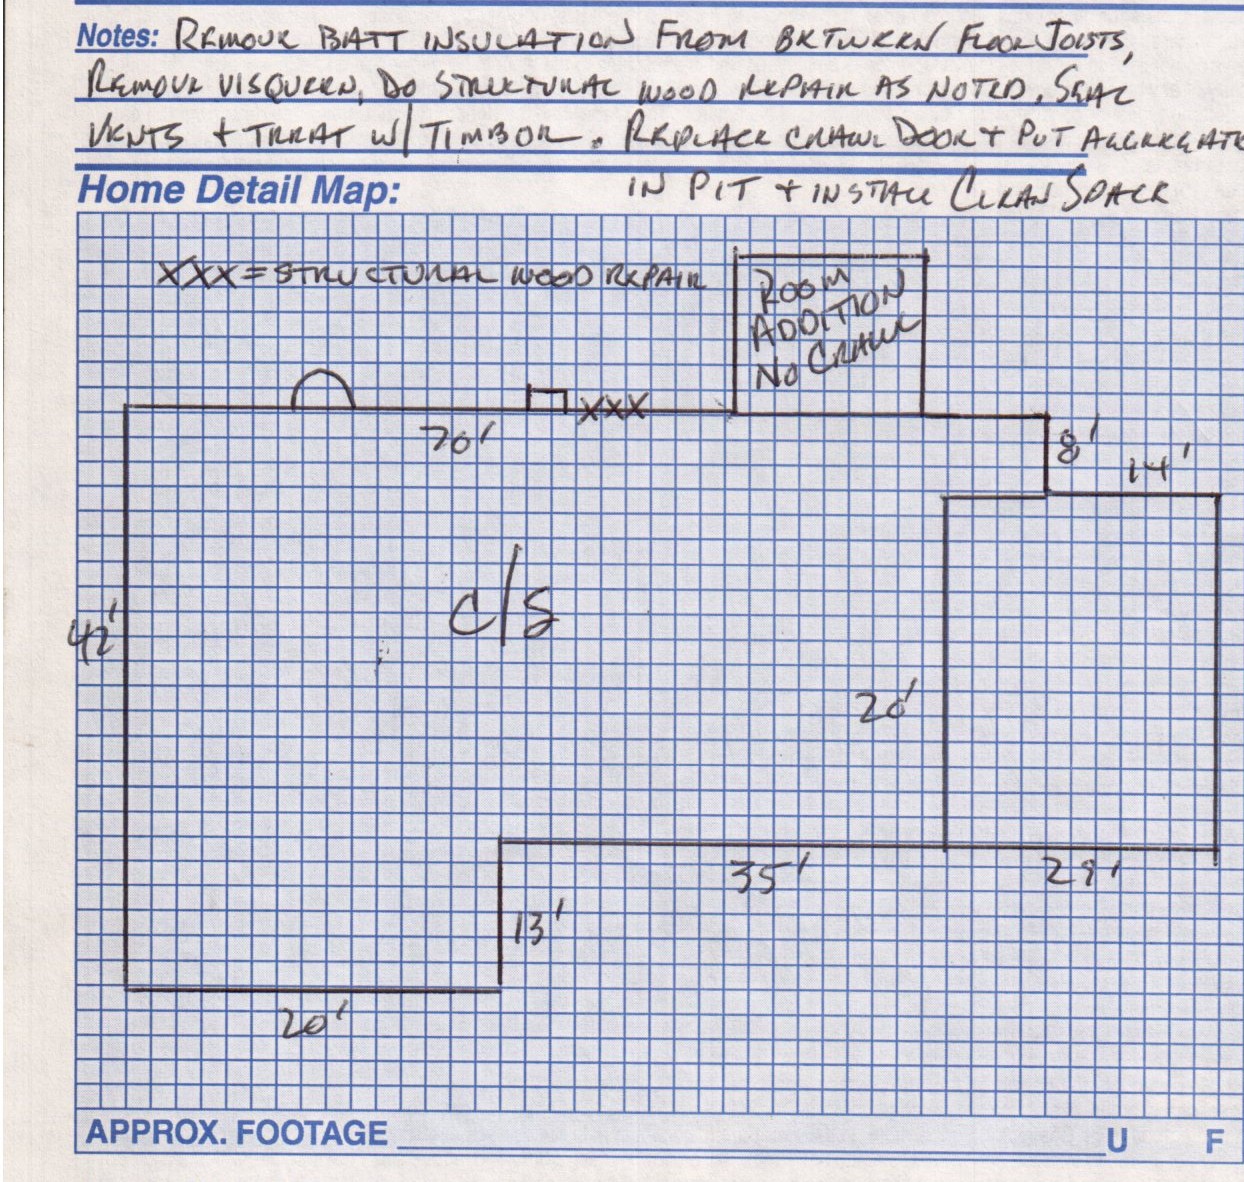 Notes: REMOVE BATT INSULATION FROM BETWEEN FLOOR JOISTS,
REMOVE VISQUEEN, DO STRUCTURAL WOOD REPAIR AS NOTED, SEAL
VENTS + TREAT W/ TIMBOR. REPLACE CRAWL DOOR + PUT AGGREGATE
IN PIT + INSTALL CLEAN SPACE
Home Detail Map:
XXX = STRUCTURAL WOOD REPAIR
ROOM
ADDITION
NO CRAWL
XXX
70'
8'
14'
C/S
42'
20'
35'
29'
13'
20'
APPROX. FOOTAGE U F